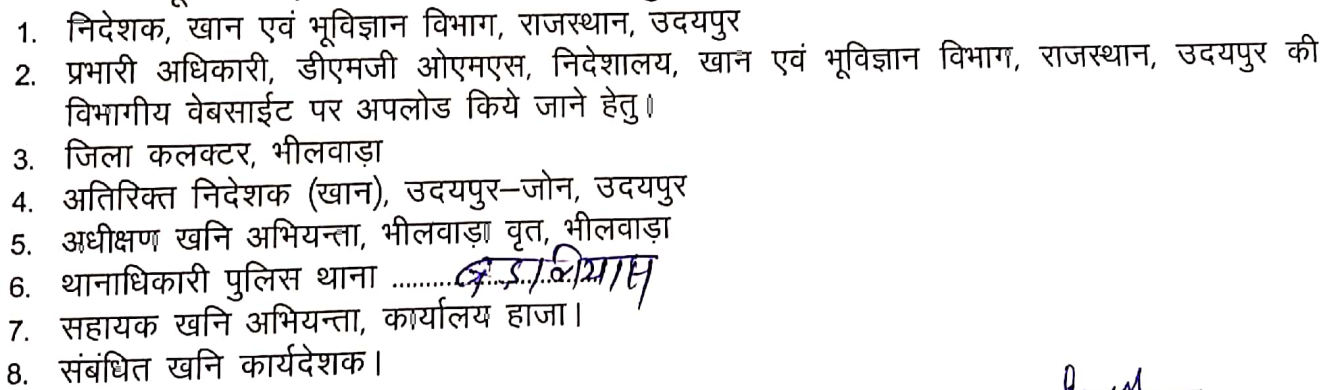 1. निदेशक, खान एवं भूविज्ञान विभाग, राजस्थान, उदयपुर
2. प्रभारी अधिकारी, डीएमजी ओएमएस, निदेशालय, खान एवं भूविज्ञान विभाग, राजस्थान, उदयपुर की
विभागीय वेबसाईट पर अपलोड किये जाने हेतु।
3. जिला कलक्टर, भीलवाड़ा
4. अतिरिक्त निदेशक (खान), उदयपुर–जोन, उदयपुर
5. अधीक्षण खनि अभियन्ता, भीलवाड़ा वृत, भीलवाड़ा
6. थानाधिकारी पुलिस थाना ..........
7. सहायक खनि अभियन्ता, कार्यालय हाजा।
8. संबंधित खनि कार्यदेशक।